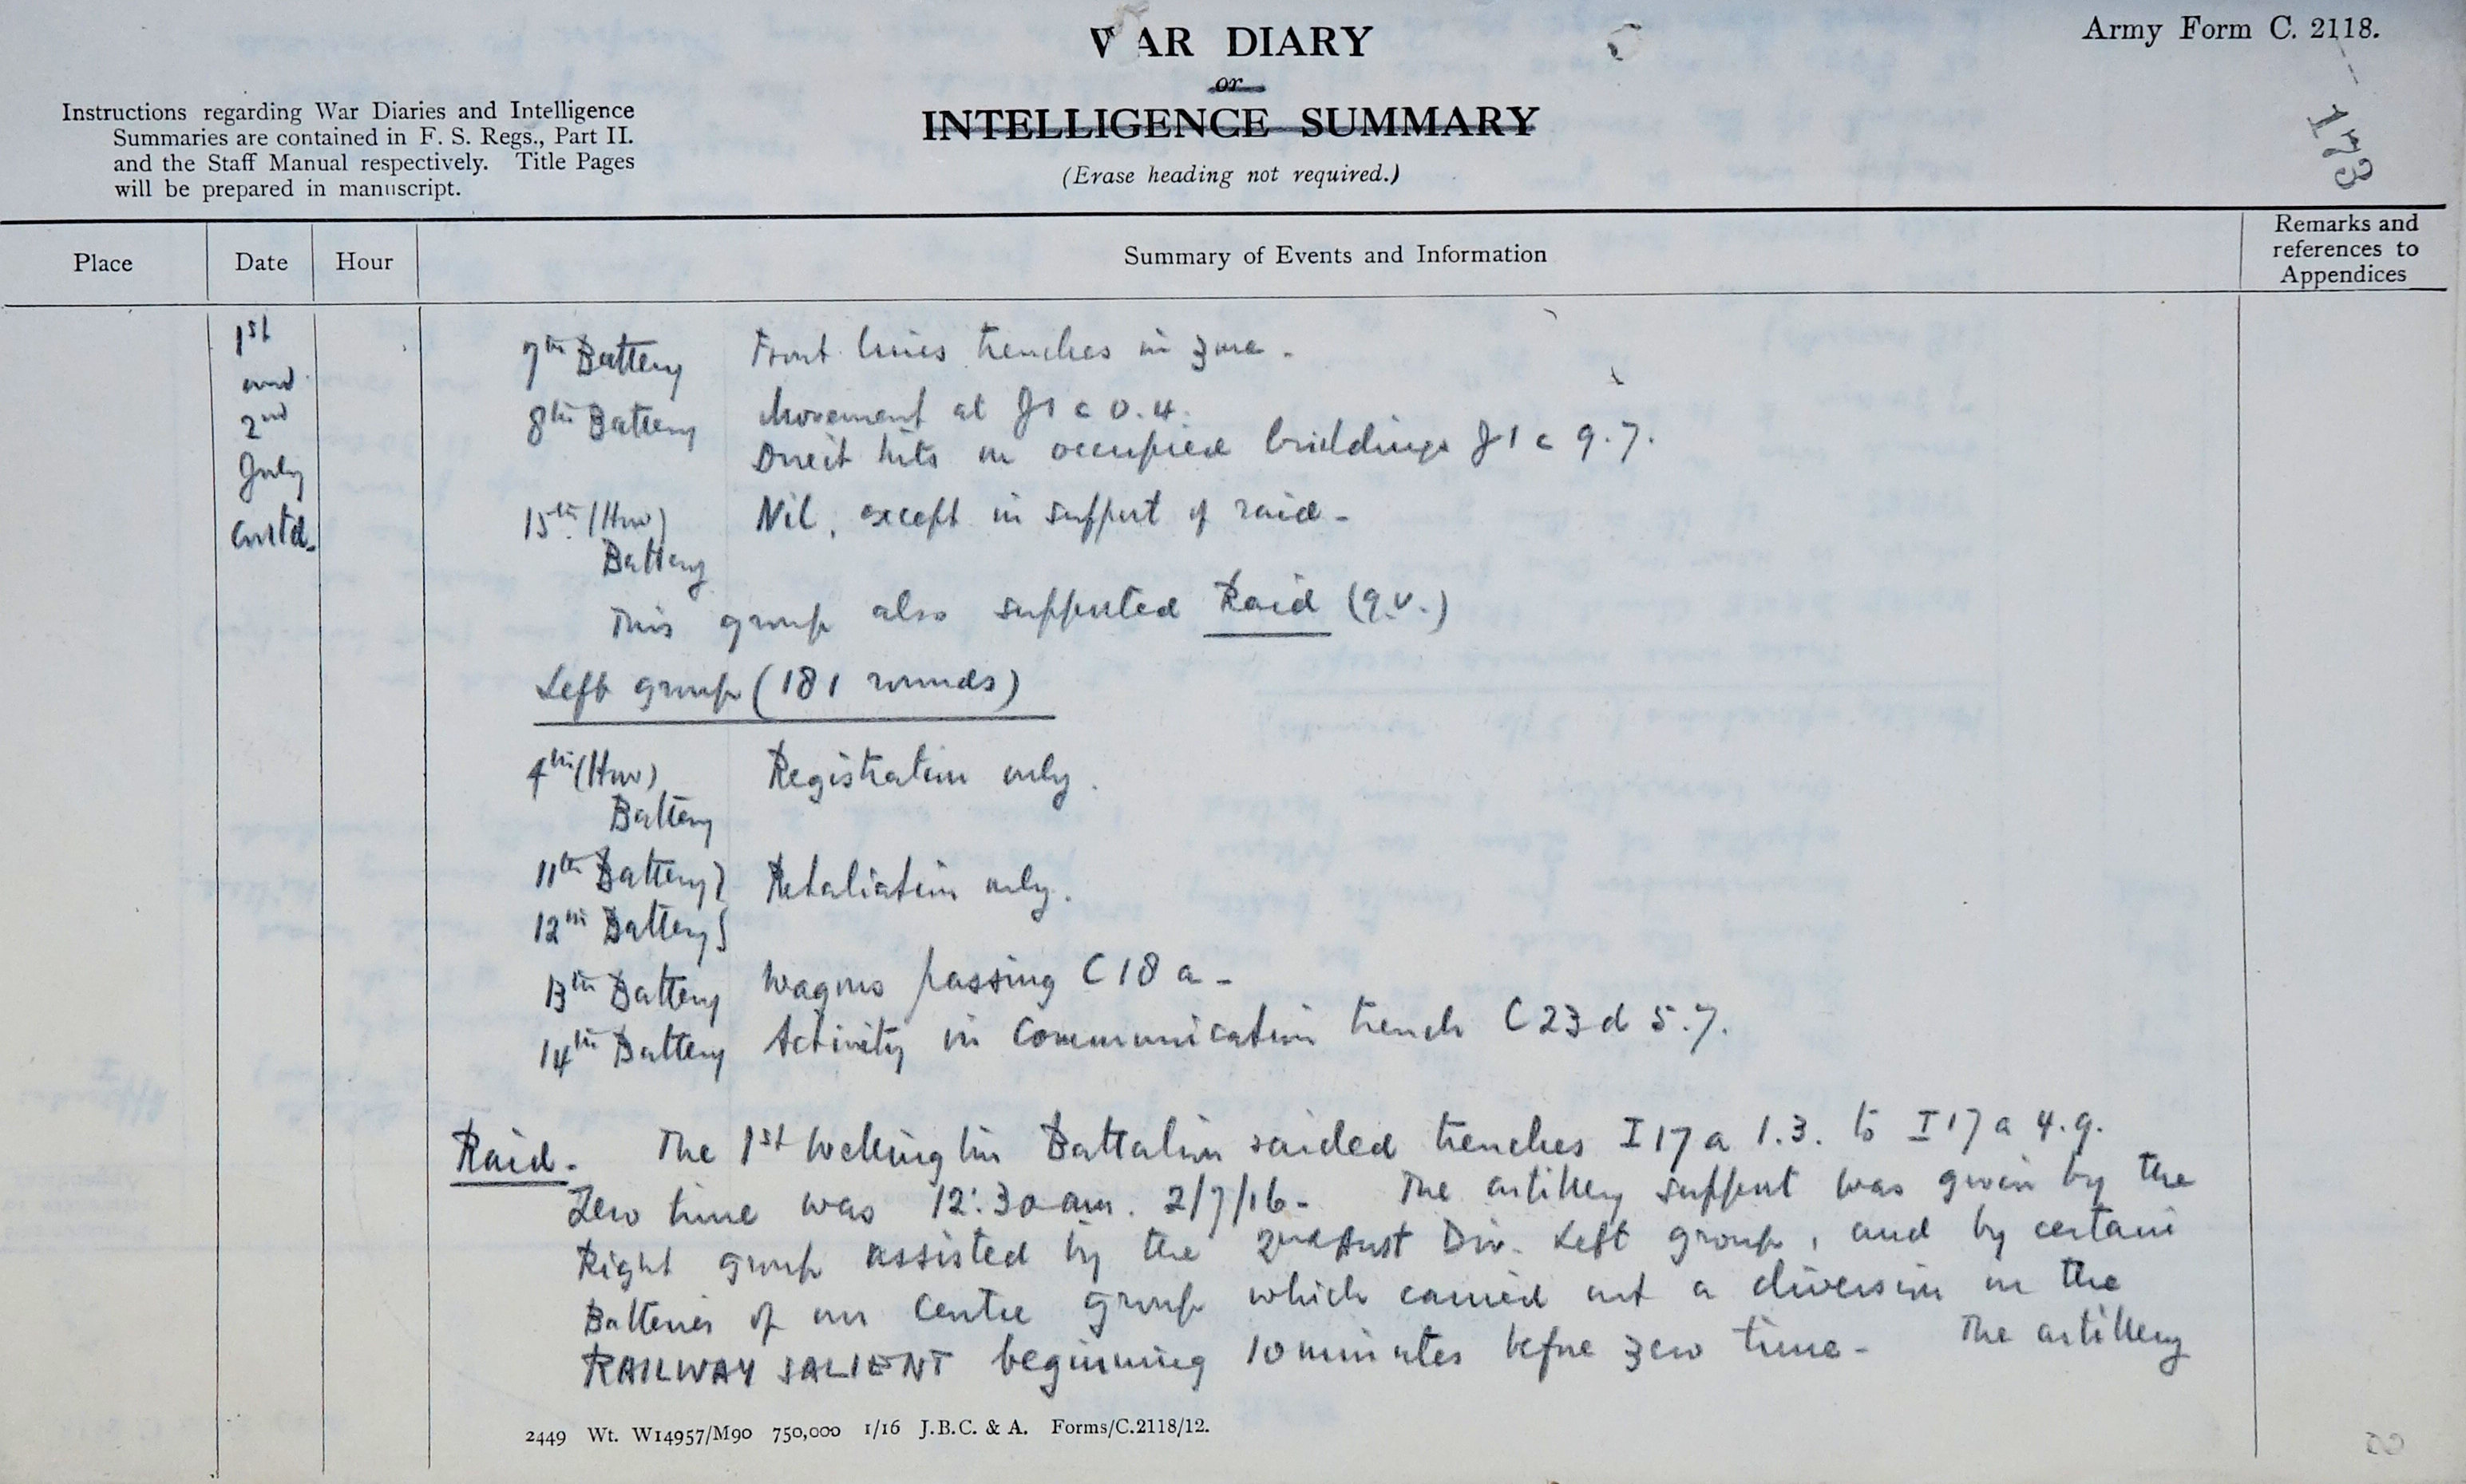 WAR DIARY
or
INTELLIGENCE SUMMARY
(Erase heading not required.)
Army Form C. 2118.
173
Instructions regarding War Diaries and Intelligence
Summaries are contained in F. S. Regs., Part II.
and the Staff Manual respectively. Title Pages
will be prepared in manuscript.
Place Date Hour Summary of Events and Information Remarks and references to Appendices
1st and 2nd July contd.
7th Battery Front lines trenches in zone.
8th Battery Movement at J1c 0.4.
Direct hits on occupied buildings J1c 9.7.
15th (How) Battery Nil, except in support of raid.
This group also supported Raid (q.v.)
Left group (181 rounds)
4th (How) Battery Registration only.
11th Battery } Retaliation only.
12th Battery }
13th Battery Wagons passing C18a.
14th Battery Activity in Communication trench C23d 5.7.
Raid. The 1st Wellington Battalion raided trenches I17a 1.3. to I17a 4.9.
Zero time was 12:30 am. 2/7/16. The artillery support was given by the
Right group assisted by the 2nd Aust Div. Left group, and by certain
Batteries of our Centre group which carried out a diversion on the
RAILWAY SALIENT beginning 10 minutes before zero time. The artillery
2449 Wt. W14957/M90 750,000 1/16 J.B.C. & A. Forms/C.2118/12.